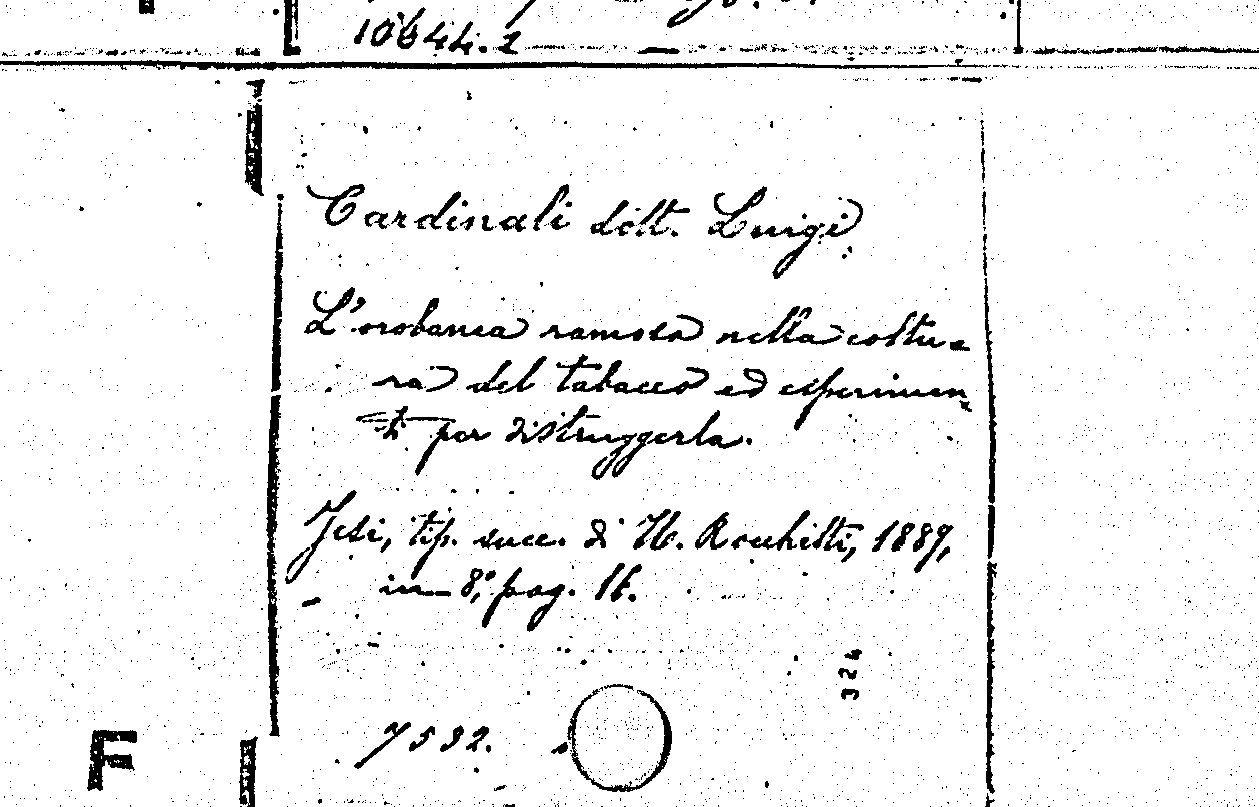 10644.2
Cardinali dott. Luigi
L'orobanca ramosa nella coltu-
ra del tabacco ed esperimen-
ti per distruggerla.
Jesi, tip. succ. di N. Rocchetti, 1889,
in-8°, pag. 16.
324
7532.
F